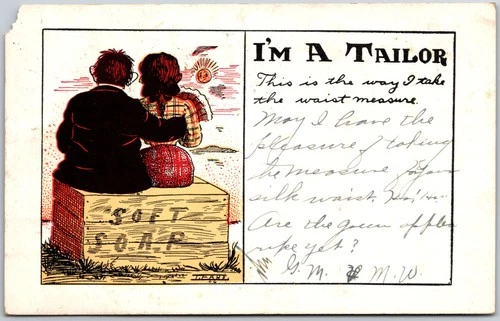 I'M A TAILOR
This is the way I take
the waist measure.
May I have the
pleasure of taking
the measure for your
silk waist.
Are the green apples
ripe yet?
G. M. & M. W.
SOFT
SOAP